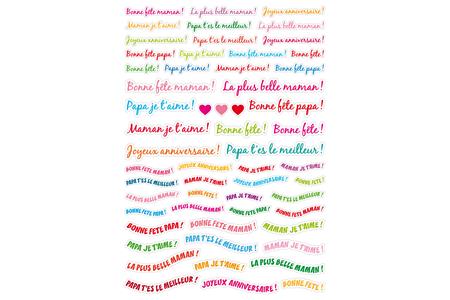 Bonne fête maman ! La plus belle maman ! Joyeux anniversaire !
Maman je t'aime ! Papa t'es le meilleur ! Joyeux anniversaire !
Joyeux anniversaire ! Papa t'es le meilleur ! Bonne fête !
Bonne fête papa ! Papa je t'aime ! Bonne fête maman ! Bonne fête !
Bonne fête ! Papa je t'aime ! Maman je t'aime ! Bonne fête papa !
Bonne fête maman ! La plus belle maman !
Papa je t'aime ! Bonne fête papa !
Maman je t'aime ! Bonne fête ! Bonne fête !
Joyeux anniversaire ! Papa t'es le meilleur !
BONNE FÊTE MAMAN ! JOYEUX ANNIVERSAIRE ! PAPA JE T'AIME !
PAPA T'ES LE MEILLEUR ! MAMAN JE T'AIME ! JOYEUX ANNIVERSAIRE ! BONNE FÊTE !
LA PLUS BELLE MAMAN ! BONNE FÊTE ! PAPA T'ES LE MEILLEUR !
BONNE FÊTE PAPA ! LA PLUS BELLE MAMAN ! BONNE FÊTE ! BONNE FÊTE MAMAN !
BONNE FÊTE PAPA ! BONNE FÊTE MAMAN ! MAMAN JE T'AIME !
PAPA JE T'AIME ! PAPA T'ES LE MEILLEUR ! MAMAN JE T'AIME !
LA PLUS BELLE MAMAN ! PAPA JE T'AIME ! LA PLUS BELLE MAMAN !
PAPA T'ES LE MEILLEUR ! JOYEUX ANNIVERSAIRE ! BONNE FÊTE !